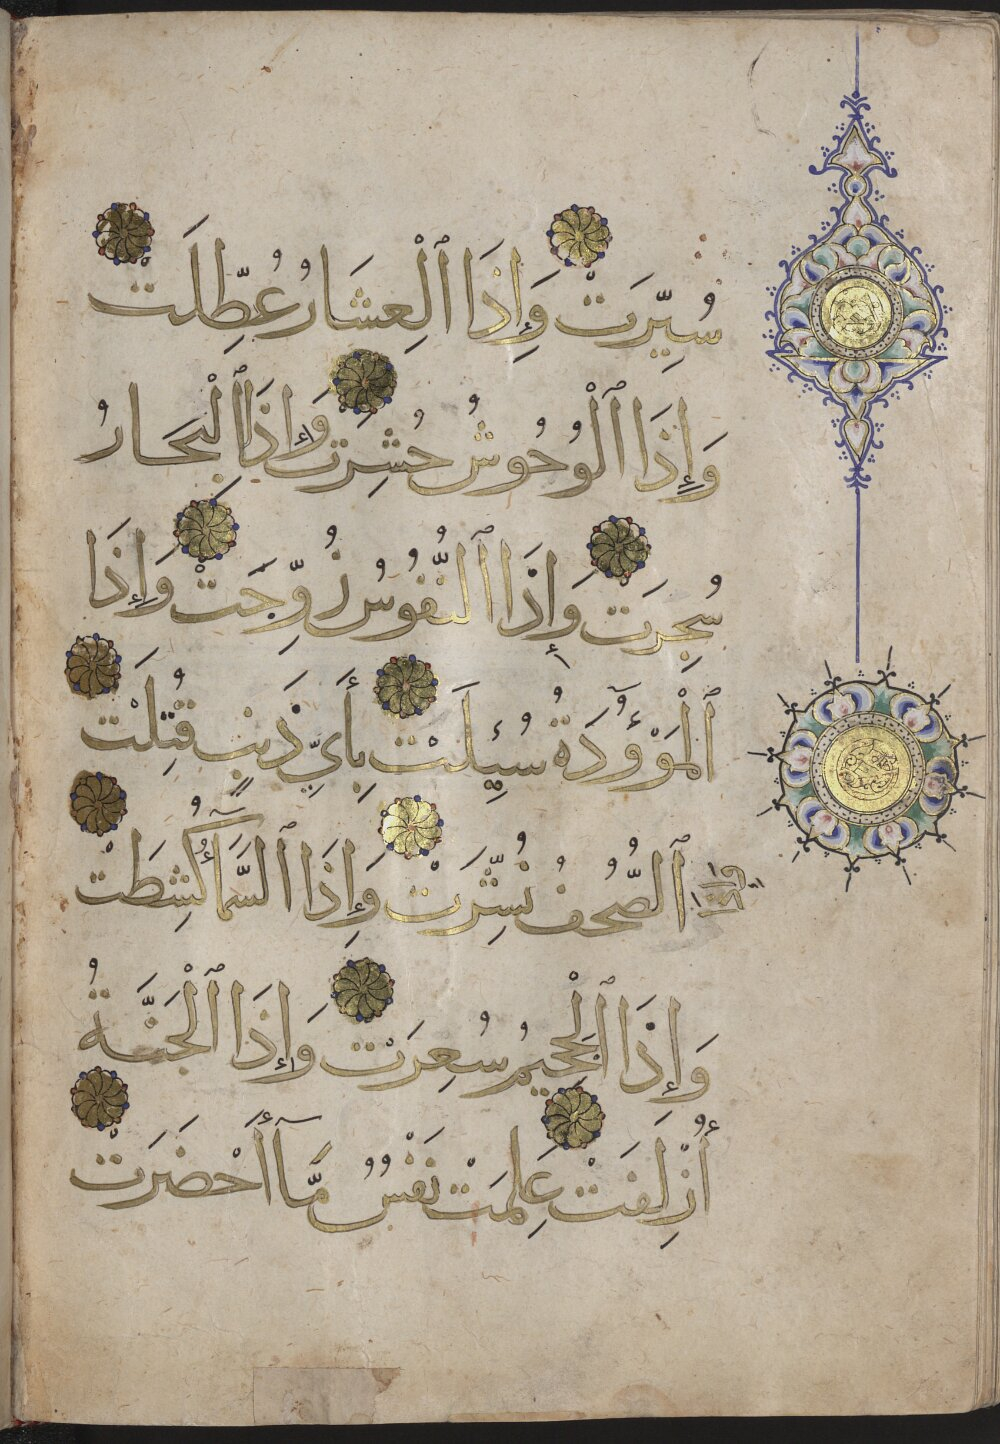 سُيِّرَتْ وَإِذَا ٱلْعِشَارُ عُطِّلَتْ
وَإِذَا ٱلْوُحُوشُ حُشِرَتْ وَإِذَا ٱلْبِحَارُ
سُجِّرَتْ وَإِذَا ٱلنُّفُوسُ زُوِّجَتْ وَإِذَا
ٱلْمَوْءُودَةُ سُئِلَتْ بِأَيِّ ذَنبٍ قُتِلَتْ
وَإِذَا ٱلصُّحُفُ نُشِّرَتْ وَإِذَا ٱلسَّمَآءُ كُشِطَتْ
وَإِذَا ٱلْجَحِيمُ سُعِرَتْ وَإِذَا ٱلْجَنَّةُ
أُزْلِفَتْ عَلِمَتْ نَفْسٌ مَّآ أَحْضَرَتْ